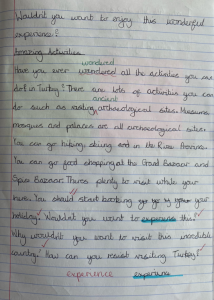 Wouldn't you want to enjoy this wonderful
experience!
Amazing Activities
wondered
Have you ever wondered all the activities you can
do in Turkey! There are lots of activities you can
ancient
do such as visiting archaeological sites. Museums
mosques and palaces are all archaeological sites.
You can go hiking, skiing and in the River
You can go food shopping at the Grand Bazaar and
Spice Bazaar. Theres plenty to visit while your
here. You should start booking your
holiday! Wouldn't you want to experience this!
Why wouldn't you want to visit this incredible
country! How can you resist visiting Turkey!
experience experience